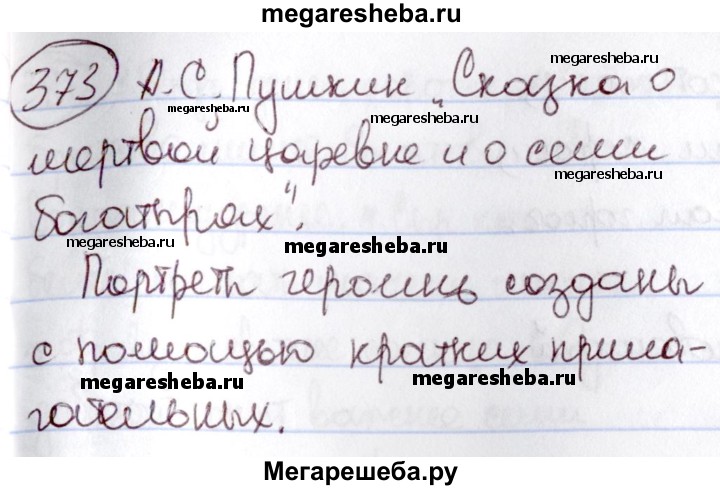 megaresheba.ru
373 А.С. Пушкин „Сказка о
megaresheba.ru
megaresheba.ru
megaresheba.ru
мертвой царевне и о семи
megaresheba.ru
богатырях".
megaresheba.ru
megaresheba.ru
Портреты героинь созданы
с помощью кратких прила-
megaresheba.ru
megaresheba.ru
гательных.
Мегарешеба.ру